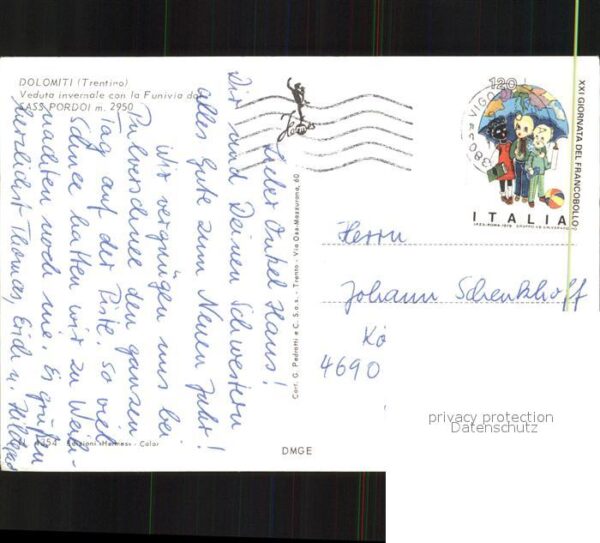 DOLOMITI (Trentino)
Veduta invernale con la Funivia da
SASS PORDOI m. 2950
Lieber Onkel Hans!
Dir und Deinen Schwestern
alles Gute zum Neuen Jahr!
Wir vergnügen uns bei
Pulverschnee den ganzen
Tag auf der Piste. So viel
Schnee hatten wir zu Weih-
nachten noch nie. Es grüßen
herzlichst Thomas, Erich u.
4254 Edizioni «Hermes» - Color
Cart. G. Pedrotti e C. S.a.s. - Trento - Via Oss-Mazzurana, 60
DMGE
120
XXI GIORNATA DEL FRANCOBOLLO
ITALIA
I.P.Z.S.-ROMA-1979
VIGO
Herrn
Johann Schenkhoff
4690
privacy protection
Datenschutz